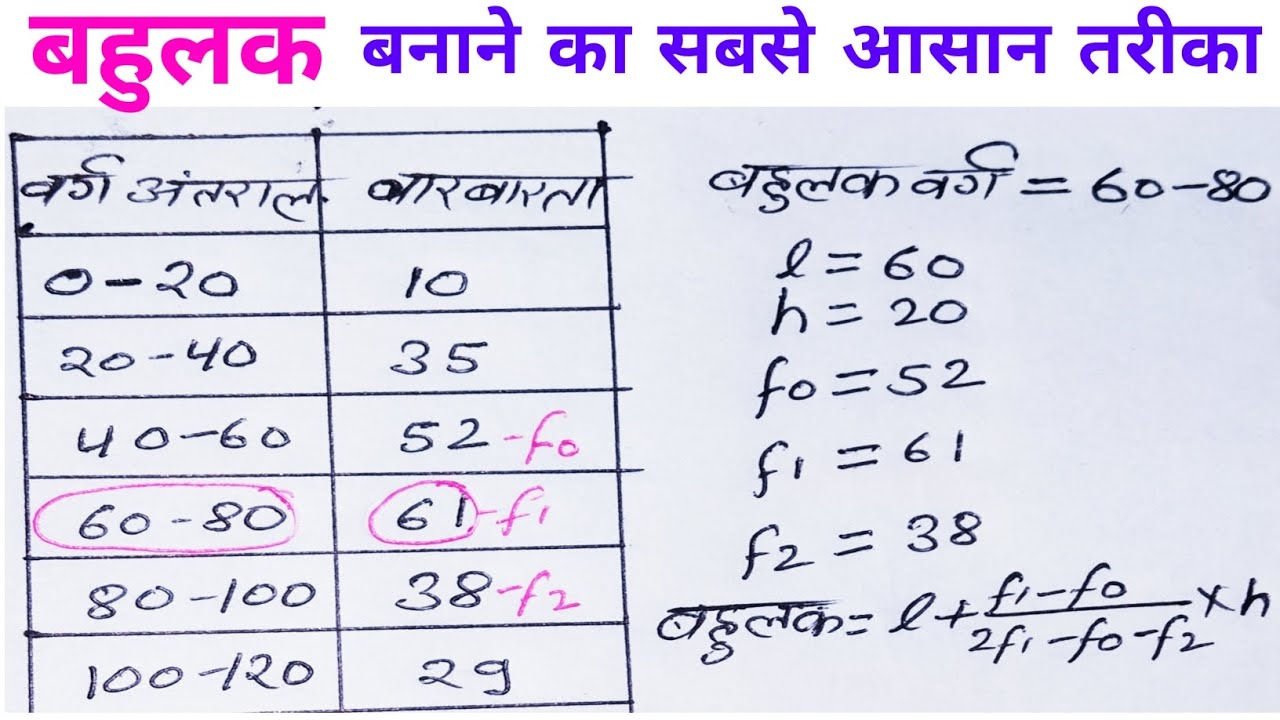 बहुलक बनाने का सबसे आसान तरीका
वर्ग अंतराल बारबारता
0-20 10
20-40 35
40-60 52-f0
60-80 61-f1
80-100 38-f2
100-120 29
बहुलक वर्ग = 60-80
l = 60
h = 20
f0 = 52
f1 = 61
f2 = 38
बहुलक = l + (f1-f0)/(2f1-f0-f2) × h